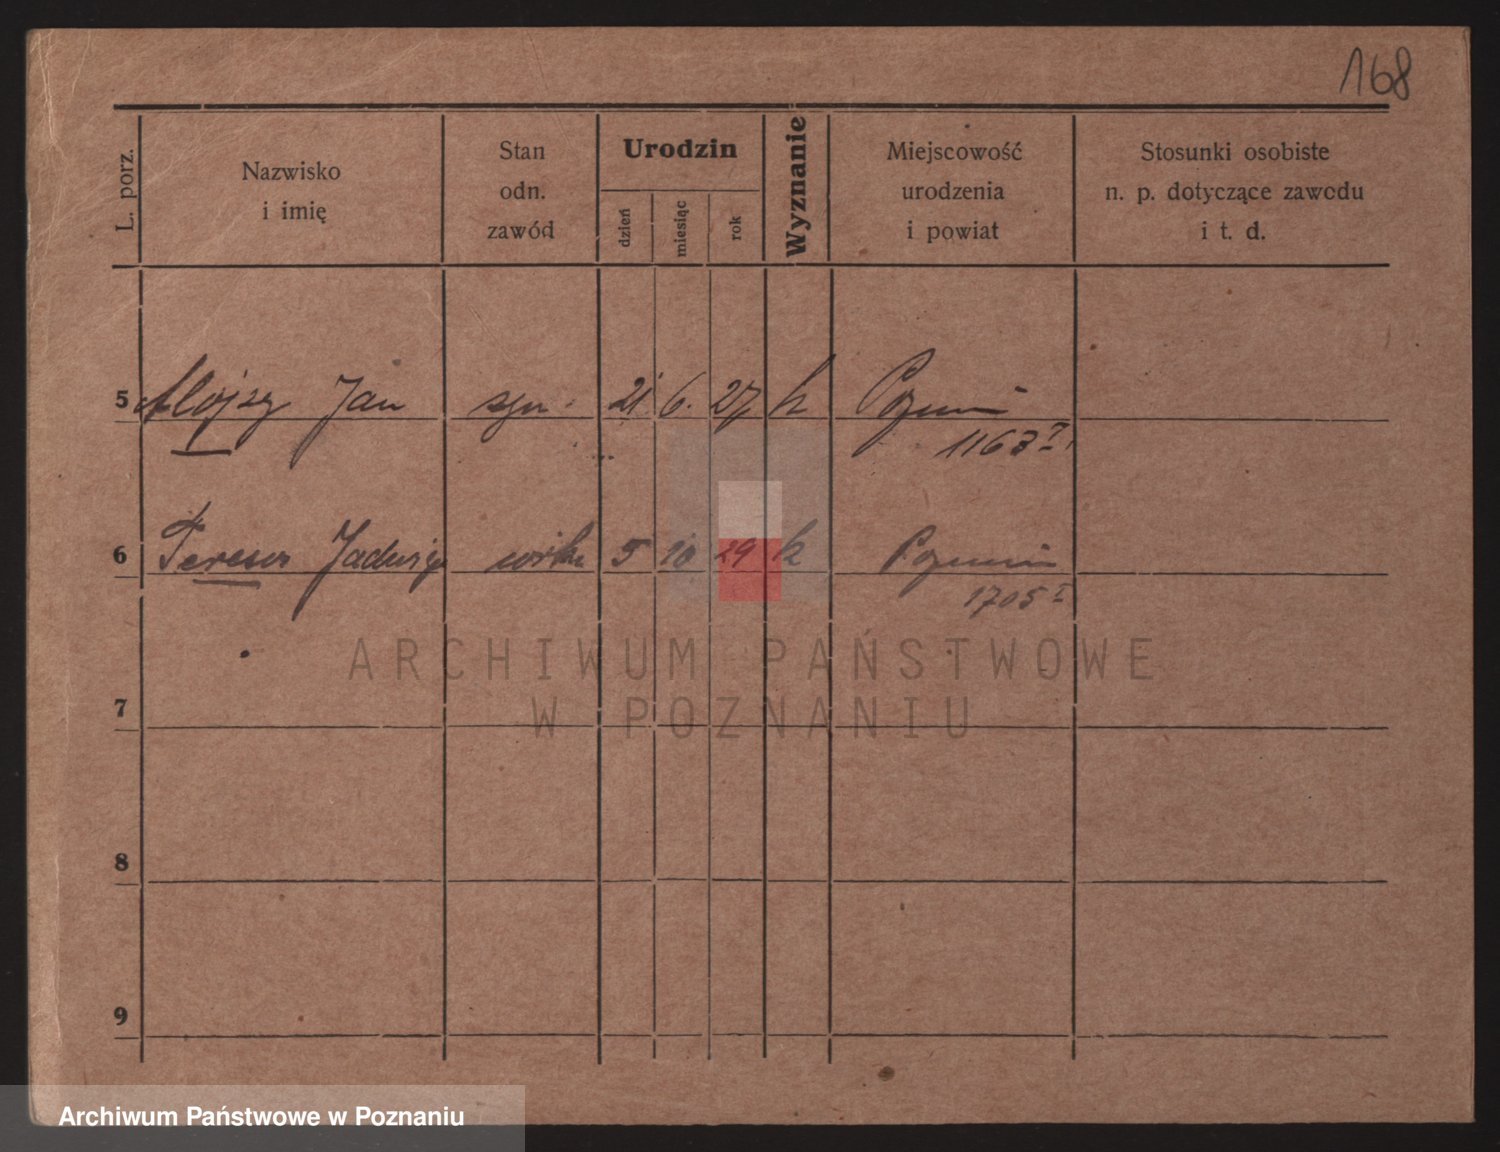 168
L. porz.
Nazwisko
i imię
Stan
odn.
zawód
Urodzin
dzień
miesiąc
rok
Wyznanie
Miejscowość
urodzenia
i powiat
Stosunki osobiste
n. p. dotyczące zawodu
i t. d.
5 Alojzy Jan syn 21 6. 27 k Poznań
1163 I
6 Teresa Jadwiga 5 10 29 k Poznań
1705 I
ARCHIWUM PAŃSTWOWE
W POZNANIU
7
8
9
Archiwum Państwowe w Poznaniu